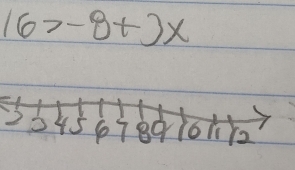 16>-8+3x
2 3 4 5 6 7 8 9 10 11 12